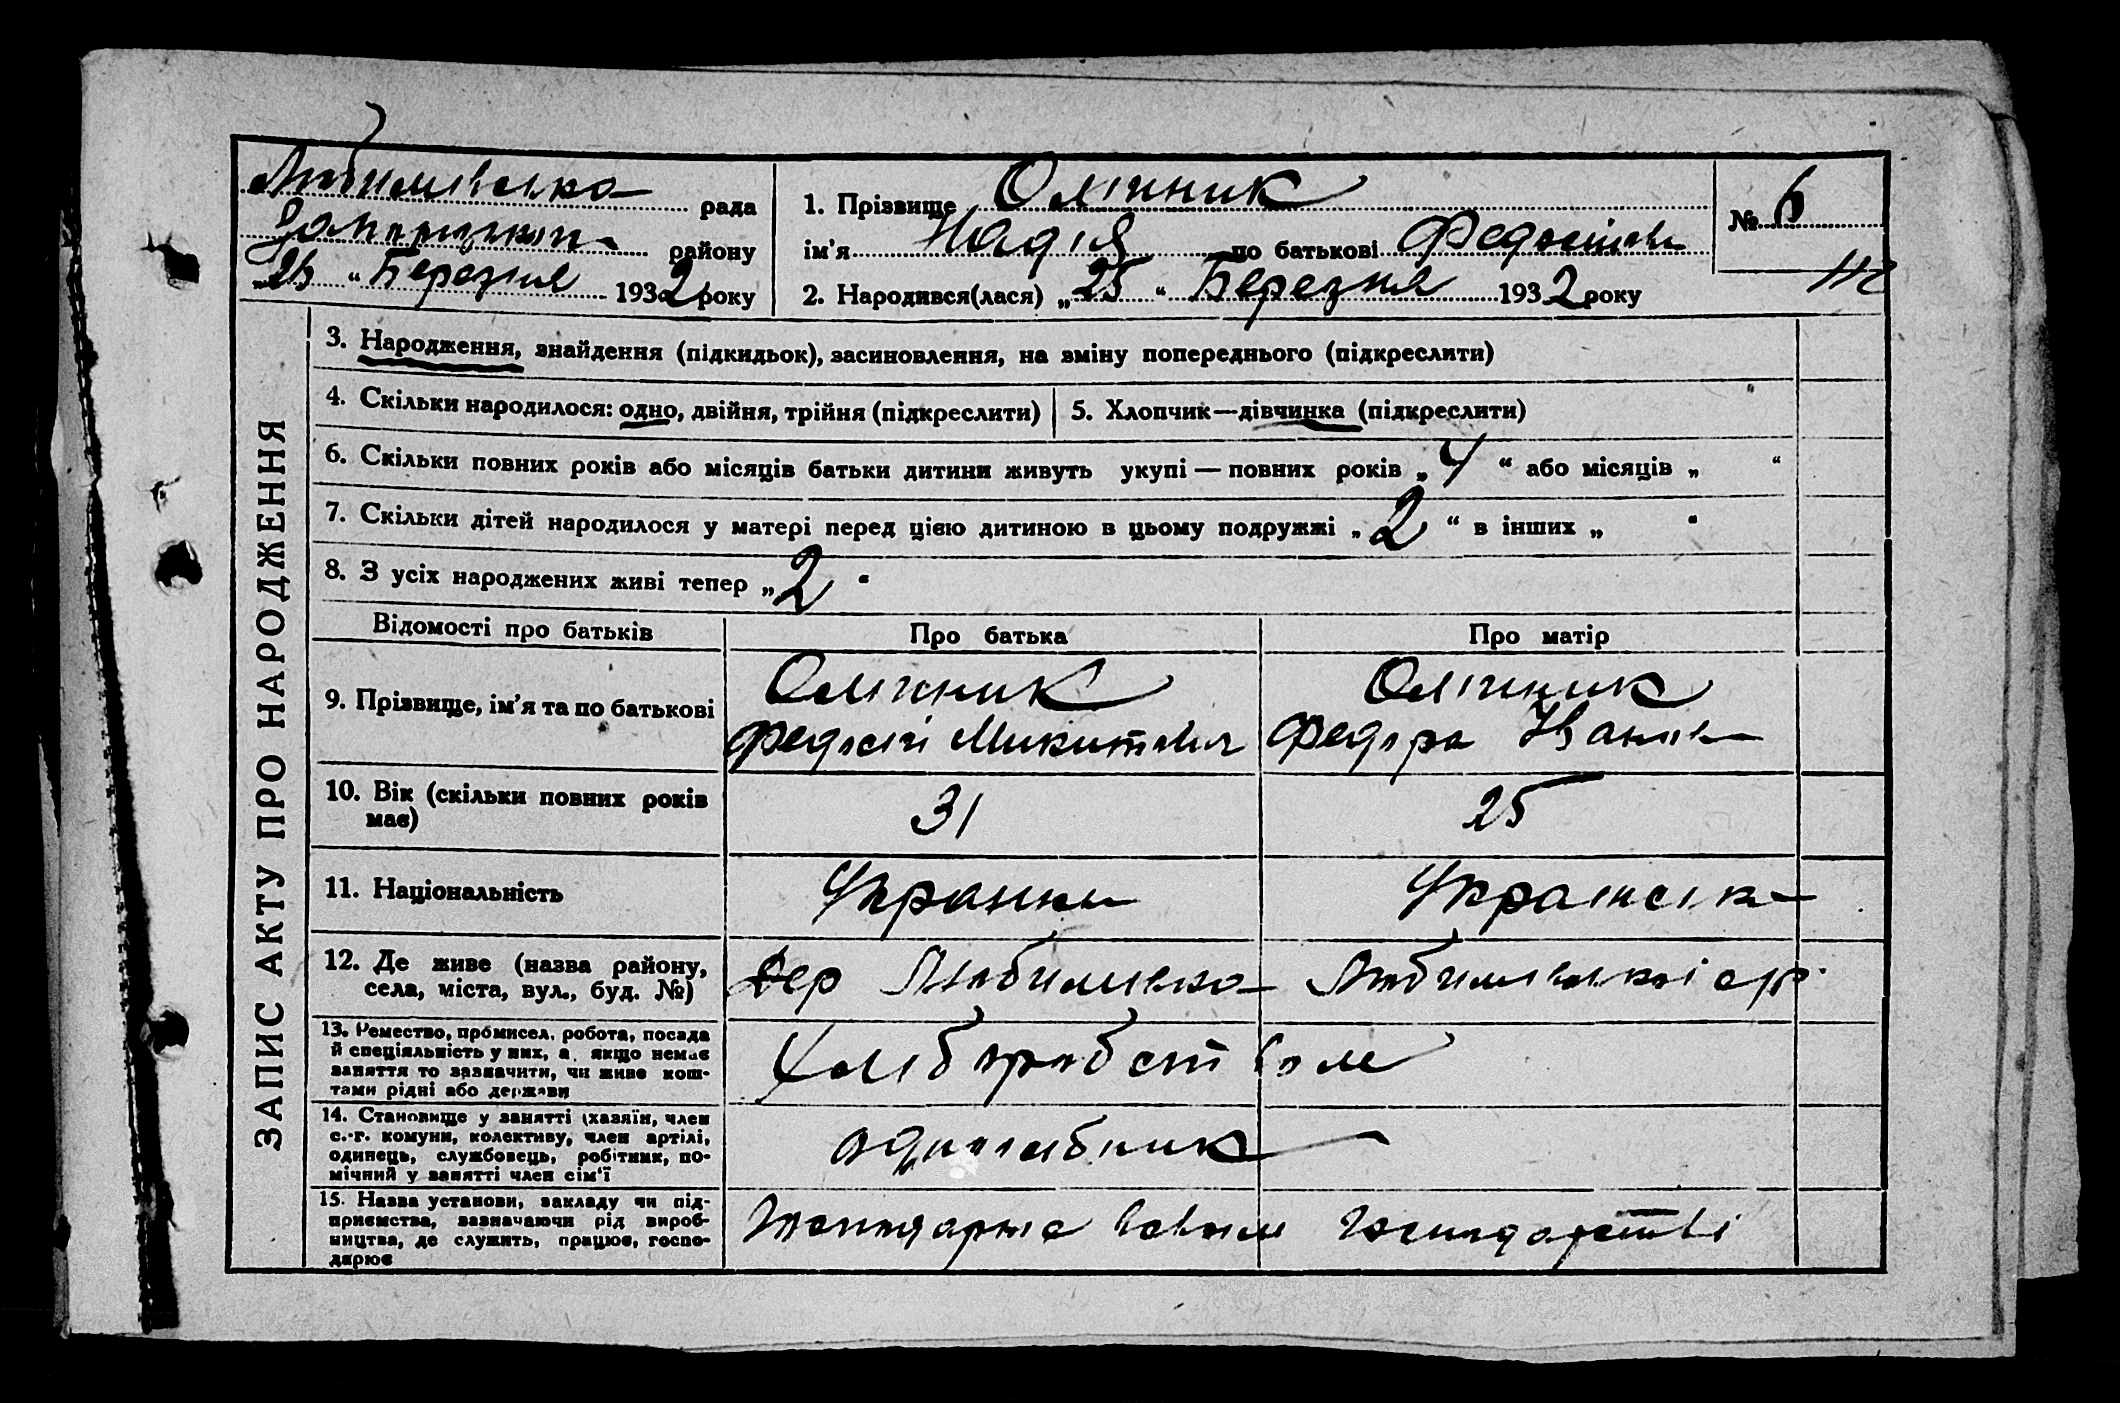 Любимівська рада
району
„25“ Березня 1932 року
1. Прізвище Олійник
ім’я Надія по батькові Федосіївн
2. Народився(лася) „25“ Березня 1932 року
№ 6
ЗАПИС АКТУ ПРО НАРОДЖЕННЯ
3. Народження, знайдення (підкидьок), засиновлення, на зміну попереднього (підкреслити)
4. Скільки народилося: одно, двійня, трійня (підкреслити)
5. Хлопчик—дівчинка (підкреслити)
6. Скільки повних років або місяців батьки дитини живуть укупі — повних років „4“ або місяців „ “
7. Скільки дітей народилося у матері перед цією дитиною в цьому подружжі „2“ в інших „ “
8. З усіх народжених живі тепер „2“
Відомості про батьків
Про батька
Про матір
9. Прізвище, ім’я та по батькові
Олійник
Федосій Микитович
Олійник
Федора Іванів
10. Вік (скільки повних років
має)
31
25
11. Національність
Українець
Українська
12. Де живе (назва району,
села, міста, вул., буд. №)
Дер Любимівка
Любимівської с/р
13. Ремество, промисел, робота, посада
й спеціяльність у них, а якщо немає
заняття то зазначити, чи живе кош-
тами рідні або держави
Хліборобством
14. Становище у занятті (хазяїн, член
с.-г. комуни, колективу, член артілі,
одинець, службовець, робітник, по-
мічний у занятті член сім’ї
одноосібник
15. Назва установи, закладу чи під-
приємства, зазначаючи рід вироб-
ництва, де служить, працює, госпо-
дарює
Господарює в своїм господарстві